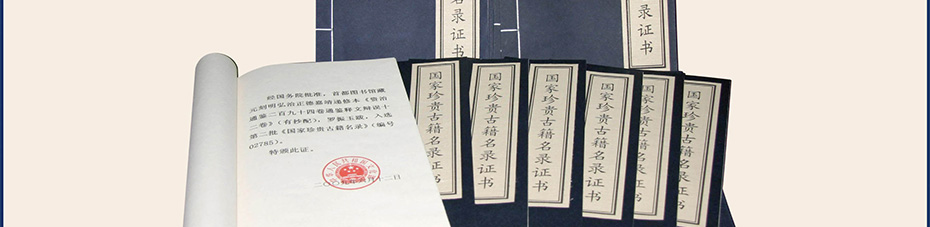 名录证书
录证书
经国务院批准，首都图书馆藏
元刻明弘治正德嘉靖递修本《资治
通鉴二百九十四卷通鉴释文辩误十
二卷》（有抄配），罗振玉跋，入选
第二批《国家珍贵古籍名录》（编号
02785）。
特颁此证。
二〇〇九年六月十二日
国家珍贵古籍名录证书
国家珍贵古籍名录证书
国家珍贵古籍名录证书
国家珍贵古籍名录证书
国家珍贵古籍名录证书
国家珍贵古籍名录证书